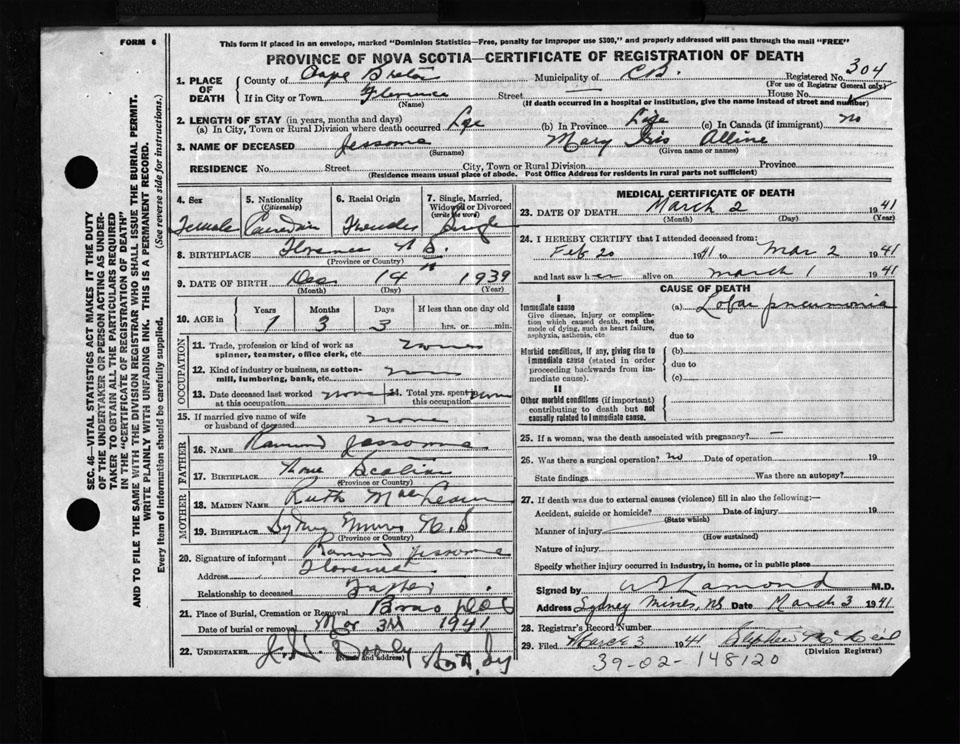 FORM 6
This form if placed in an envelope, marked "Dominion Statistics—Free, penalty for improper use $300," and properly addressed will pass through the mail "FREE"
PROVINCE OF NOVA SCOTIA—CERTIFICATE OF REGISTRATION OF DEATH
1. PLACE OF DEATH County of Cape Breton Municipality of C.B. Registered No. 304
(For use of Registrar General only)
If in City or Town Florence Street House No.
(Name) (If death occurred in a hospital or institution, give the name instead of street and number)
2. LENGTH OF STAY (in years, months and days)
(a) In City, Town or Rural Division where death occurred Life (b) In Province Life (c) In Canada (if immigrant) no
3. NAME OF DECEASED Jessome Mary Iris Alline
(Surname) (Given name or names)
RESIDENCE No. Street City, Town or Rural Division Province
(Residence means usual place of abode. Post Office Address for residents in rural parts not sufficient)
SEC. 46—VITAL STATISTICS ACT MAKES IT THE DUTY
OF THE UNDERTAKER OR PERSON ACTING AS UNDER-
TAKER TO OBTAIN ALL THE PARTICULARS REQUIRED
IN THE "CERTIFICATE OF REGISTRATION OF DEATH"
AND TO FILE THE SAME WITH THE DIVISION REGISTRAR WHO SHALL ISSUE THE BURIAL PERMIT.
WRITE PLAINLY WITH UNFADING INK. THIS IS A PERMANENT RECORD.
Every item of information should be carefully supplied. (See reverse side for instructions.)
4. Sex Female
5. Nationality (Citizenship) Canadian
6. Racial Origin
7. Single, Married, Widowed or Divorced (write the word) Single
8. BIRTHPLACE Florence N S.
(Province or Country)
9. DATE OF BIRTH Dec 14 1939
(Month) (Day) (Year)
10. AGE in Years Months Days If less than one day old
1 3 3 hrs. or min.
OCCUPATION
11. Trade, profession or kind of work as spinner, teamster, office clerk, etc. none
12. Kind of industry or business, as cotton-mill, lumbering, bank, etc. none
13. Date deceased last worked at this occupation none 14. Total yrs. spent in this occupation none
15. If married give name of wife or husband of deceased none
FATHER
16. NAME Ramond Jessome
17. BIRTHPLACE Nova Scotian
(Province or Country)
MOTHER
18. MAIDEN NAME Ruth Mac
19. BIRTHPLACE Sydney Mines N. S
(Province or Country)
20. Signature of informant Ramond Jessome
Address Florence
Relationship to deceased Father
21. Place of Burial, Cremation or Removal Bras d'or
Date of burial or removal Mar 3rd 1941
22. UNDERTAKER J. N. Dooly
(Name and address)
MEDICAL CERTIFICATE OF DEATH
23. DATE OF DEATH March 2 1941
(Month) (Day) (Year)
24. I HEREBY CERTIFY that I attended deceased from:
Feb 20 1941 to Mar 2 1941
and last saw her alive on March 1 1941
CAUSE OF DEATH
I
Immediate cause
Give disease, injury or complication which caused death, not the mode of dying, such as heart failure, asphyxia, asthenia, etc
(a) Lobar pneumonia
due to
Morbid conditions, if any, giving rise to immediate cause (stated in order proceeding backwards from immediate cause).
(b)
due to
(c)
II
Other morbid conditions (if important) contributing to death but not causally related to immediate cause.
25. If a woman, was the death associated with pregnancy? —
26. Was there a surgical operation? no Date of operation 19
State findings Was there an autopsy?
27. If death was due to external causes (violence) fill in also the following:—
Accident, suicide or homicide? Date of injury 19
(State which)
Manner of injury
(How sustained)
Nature of injury
Specify whether injury occurred in industry, in home, or in public place
Signed by Lamond M.D.
Address Sydney Mines, NS Date March 3 1941
28. Registrar's Record Number
29. Filed March 3 1941 Stephen McNeil
(Division Registrar)
39-02-148120